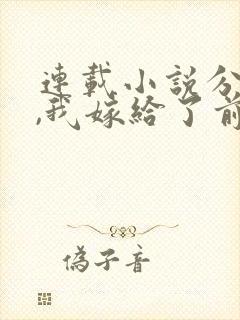 連載小說分
,我嫁給了前
偽子音